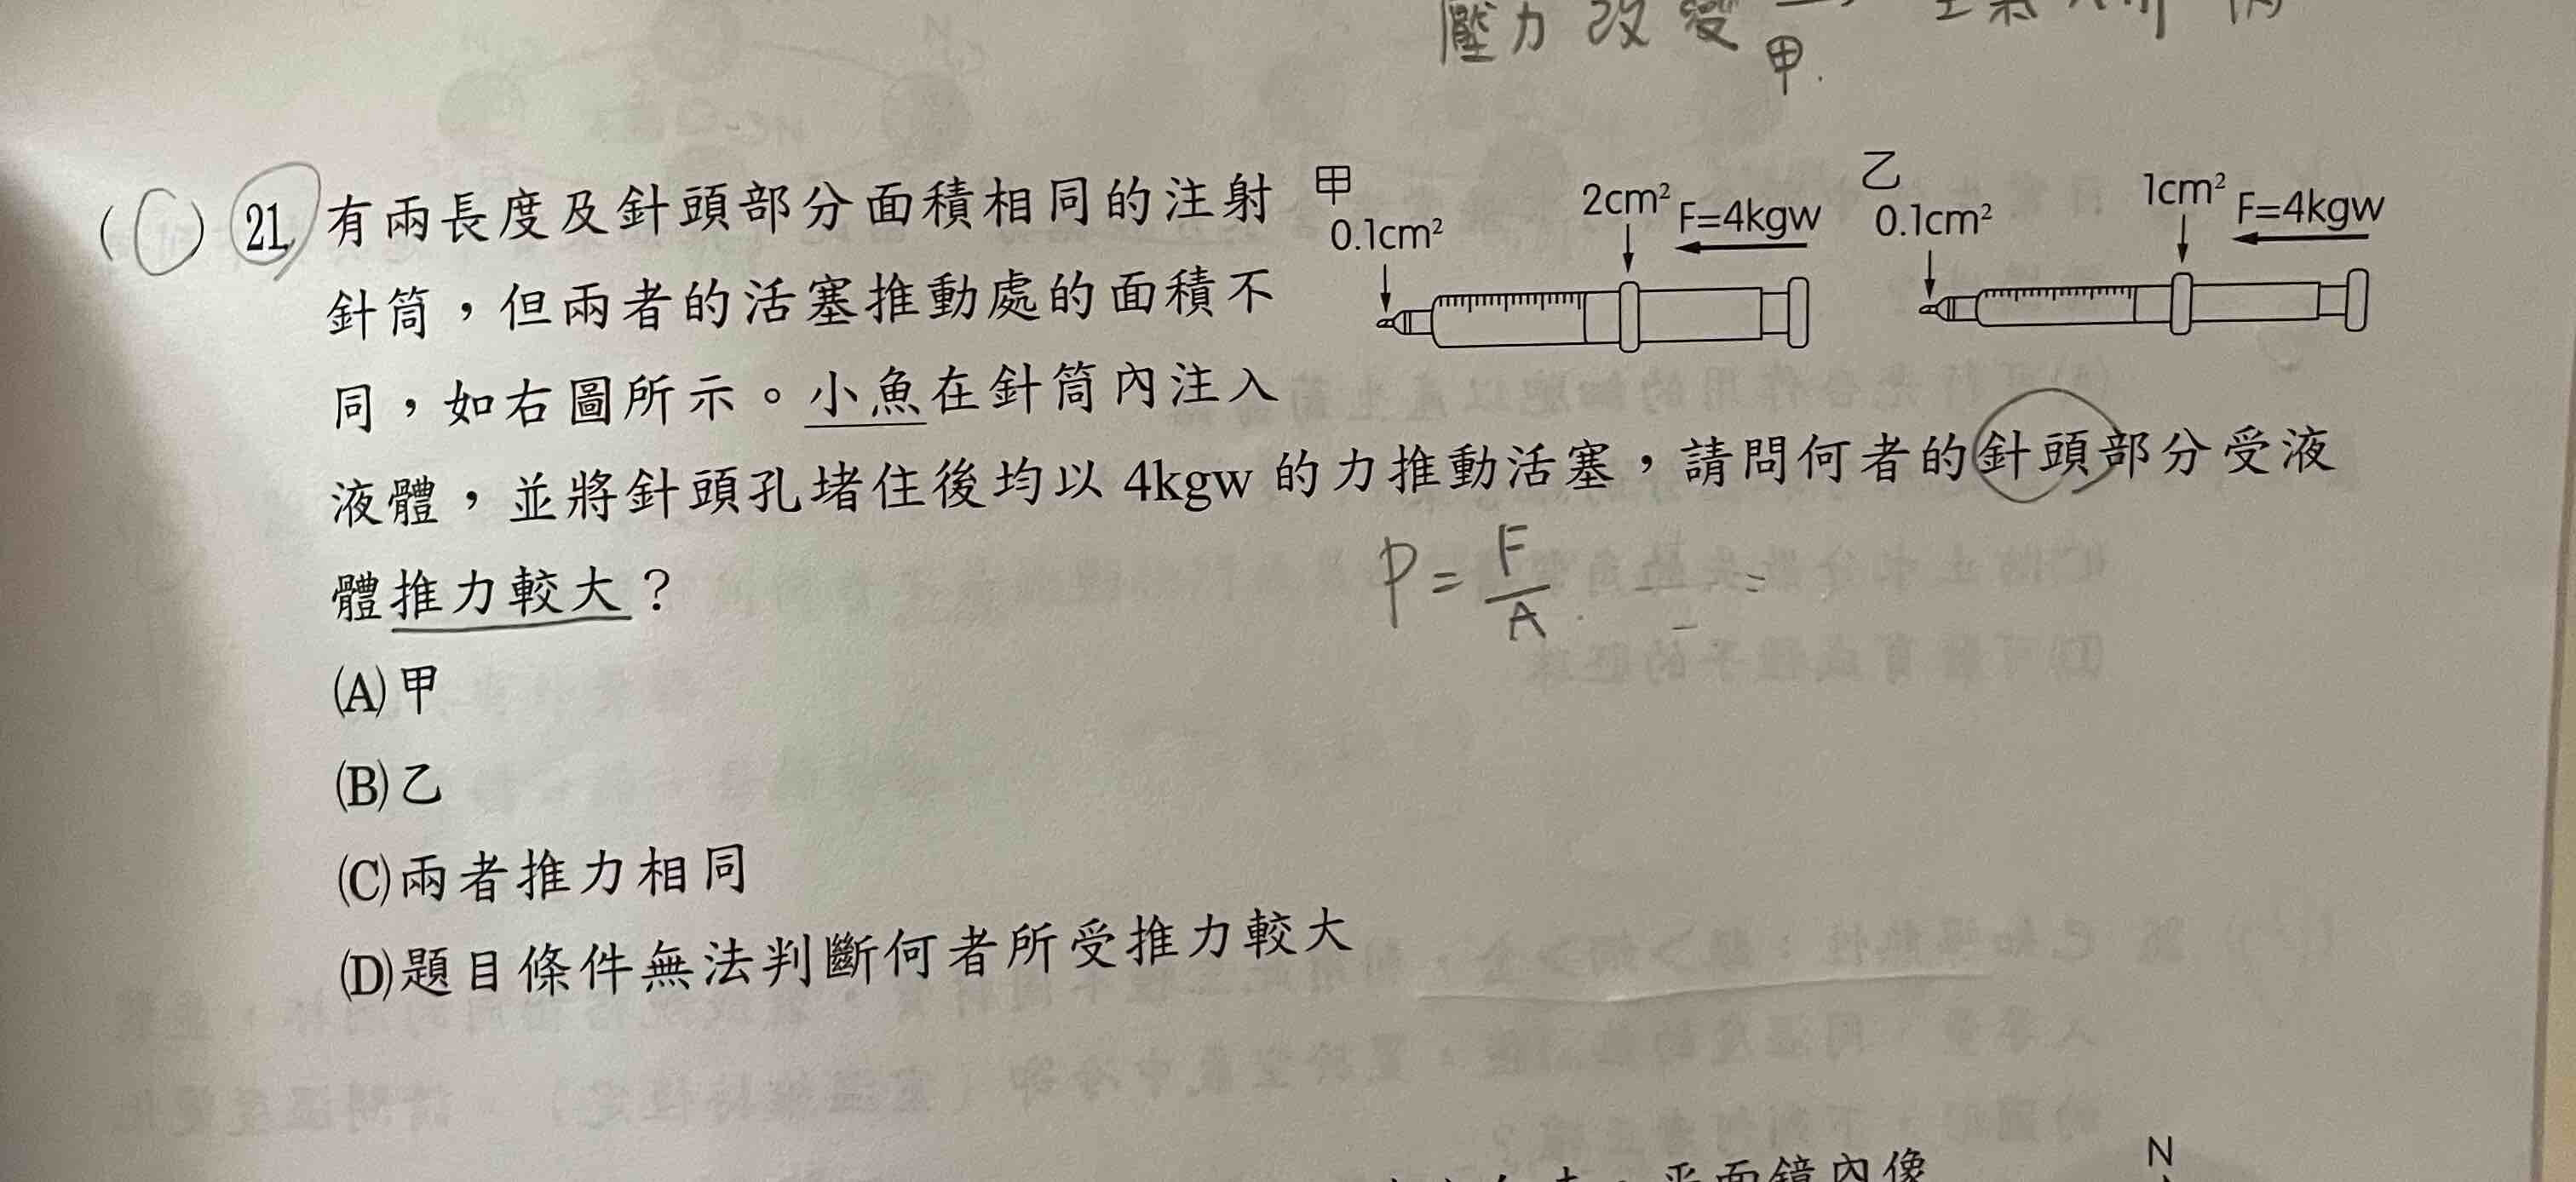 壓力改變
甲.
(C) 21. 有兩長度及針頭部分面積相同的注射
針筒，但兩者的活塞推動處的面積不
同，如右圖所示。小魚在針筒內注入
液體，並將針頭孔堵住後均以 4kgw 的力推動活塞，請問何者的針頭部分受液
體推力較大？
甲
0.1cm²
2cm²
F=4kgw
乙
0.1cm²
1cm²
F=4kgw
P = F/A =
(A)甲
(B)乙
(C)兩者推力相同
(D)題目條件無法判斷何者所受推力較大
平面鏡內像
N